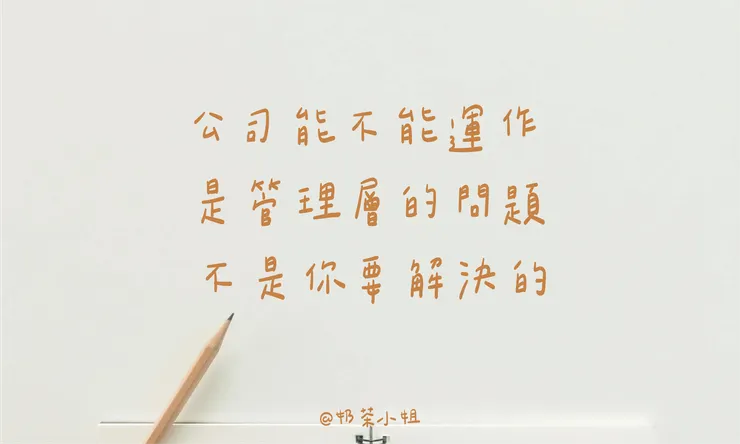 公司能不能運作
是管理層的問題
不是你要解決的
@奶茶小姐